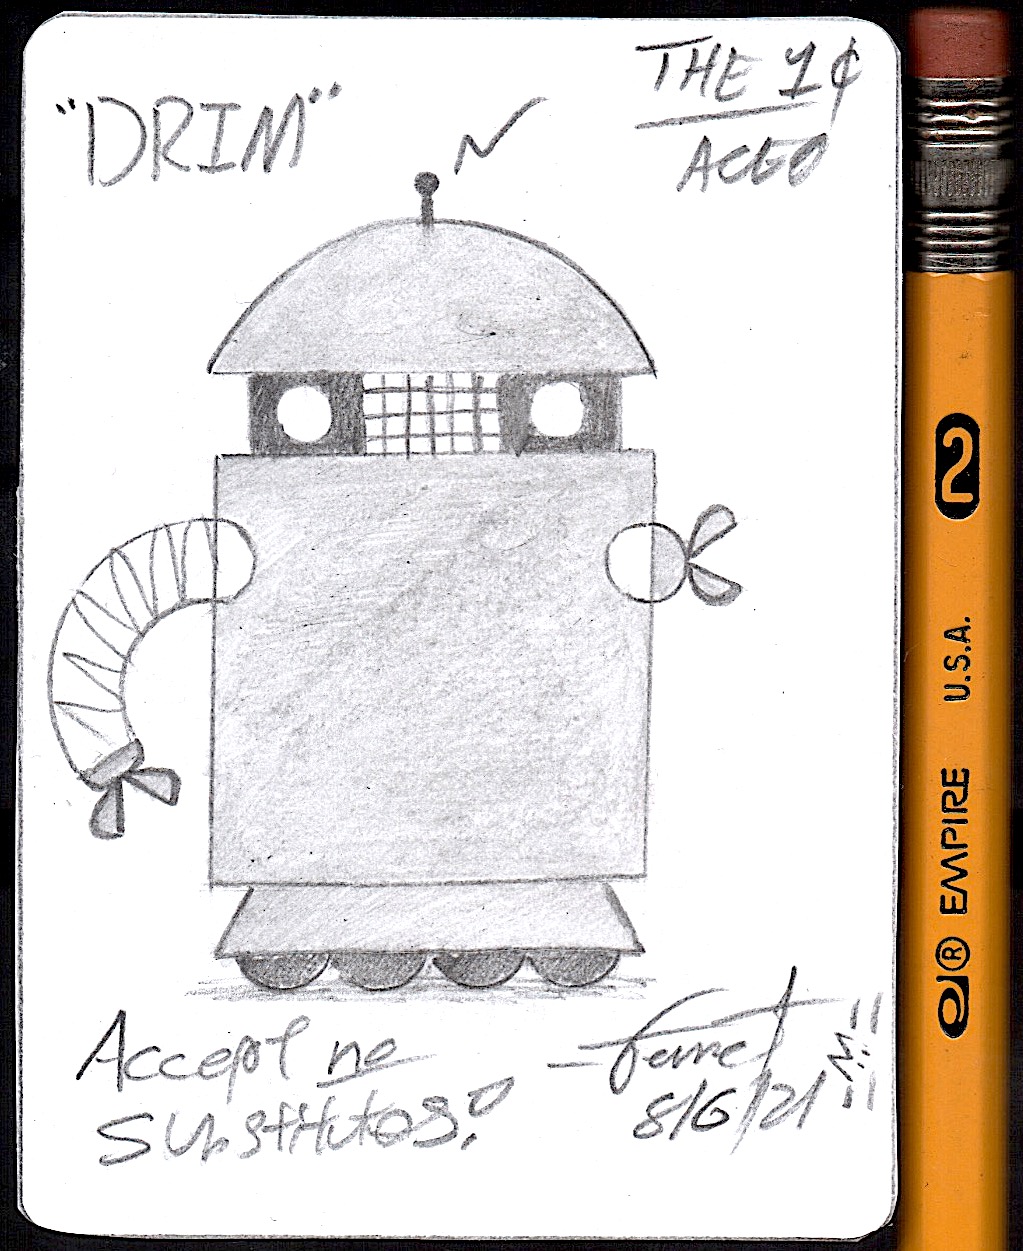 "DRIM"
THE 1¢
ACEO
Accept no
substitutes!
8/6/21
"M"
2
U.S.A.
® EMPIRE